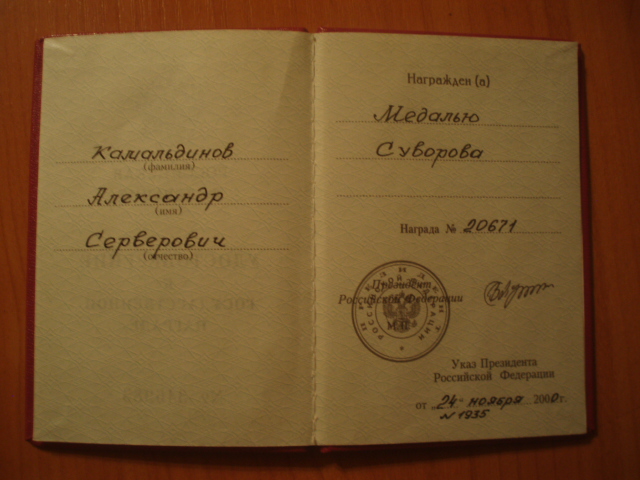 Камальдинов
(фамилия)
Александр
(имя)
Серверович
(отчество)
Награжден (а)
Медалью
Суворова
Награда № 20671
Президент
Российской Федерации
Указ Президента
Российской Федерации
от „24“ ноября 2000 г.
N 1935